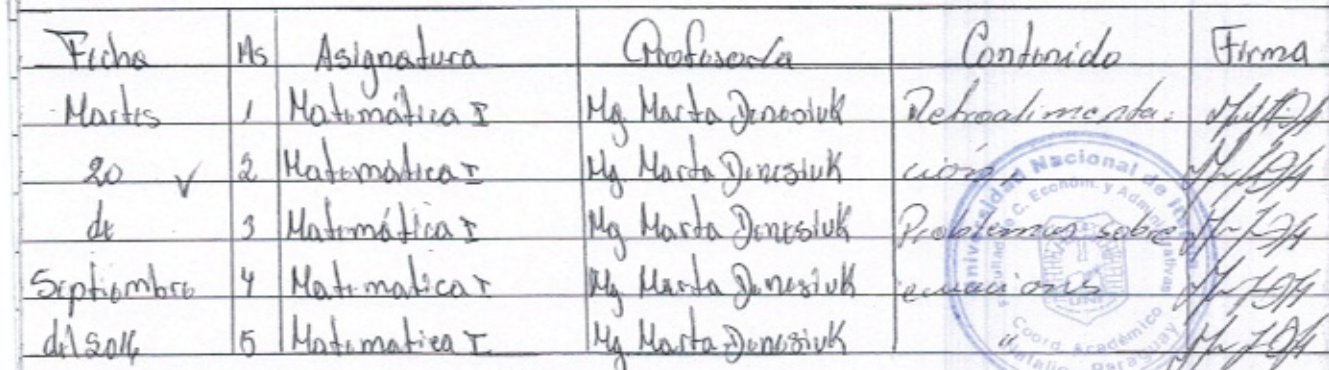 Fecha Hs Asignatura Profesor/a Contenido Firma
Martes 1 Matemática I Mg Marta Denesiuk Retroalimenta-
20 ✓ 2 Matemática I Mg Marta Denesiuk ción
de 3 Matemática I Mg Marta Denesiuk Problemas sobre
Septiembre 4 Matematica I Mg Marta Denesiuk ecuaciones
del 2016 5 Matematica I Mg Marta Denesiuk "
Universidad Nacional de Itapúa
Facultad de C. Econom. y Administrativas
UNI
Coord. Académico
Natalio - Paraguay